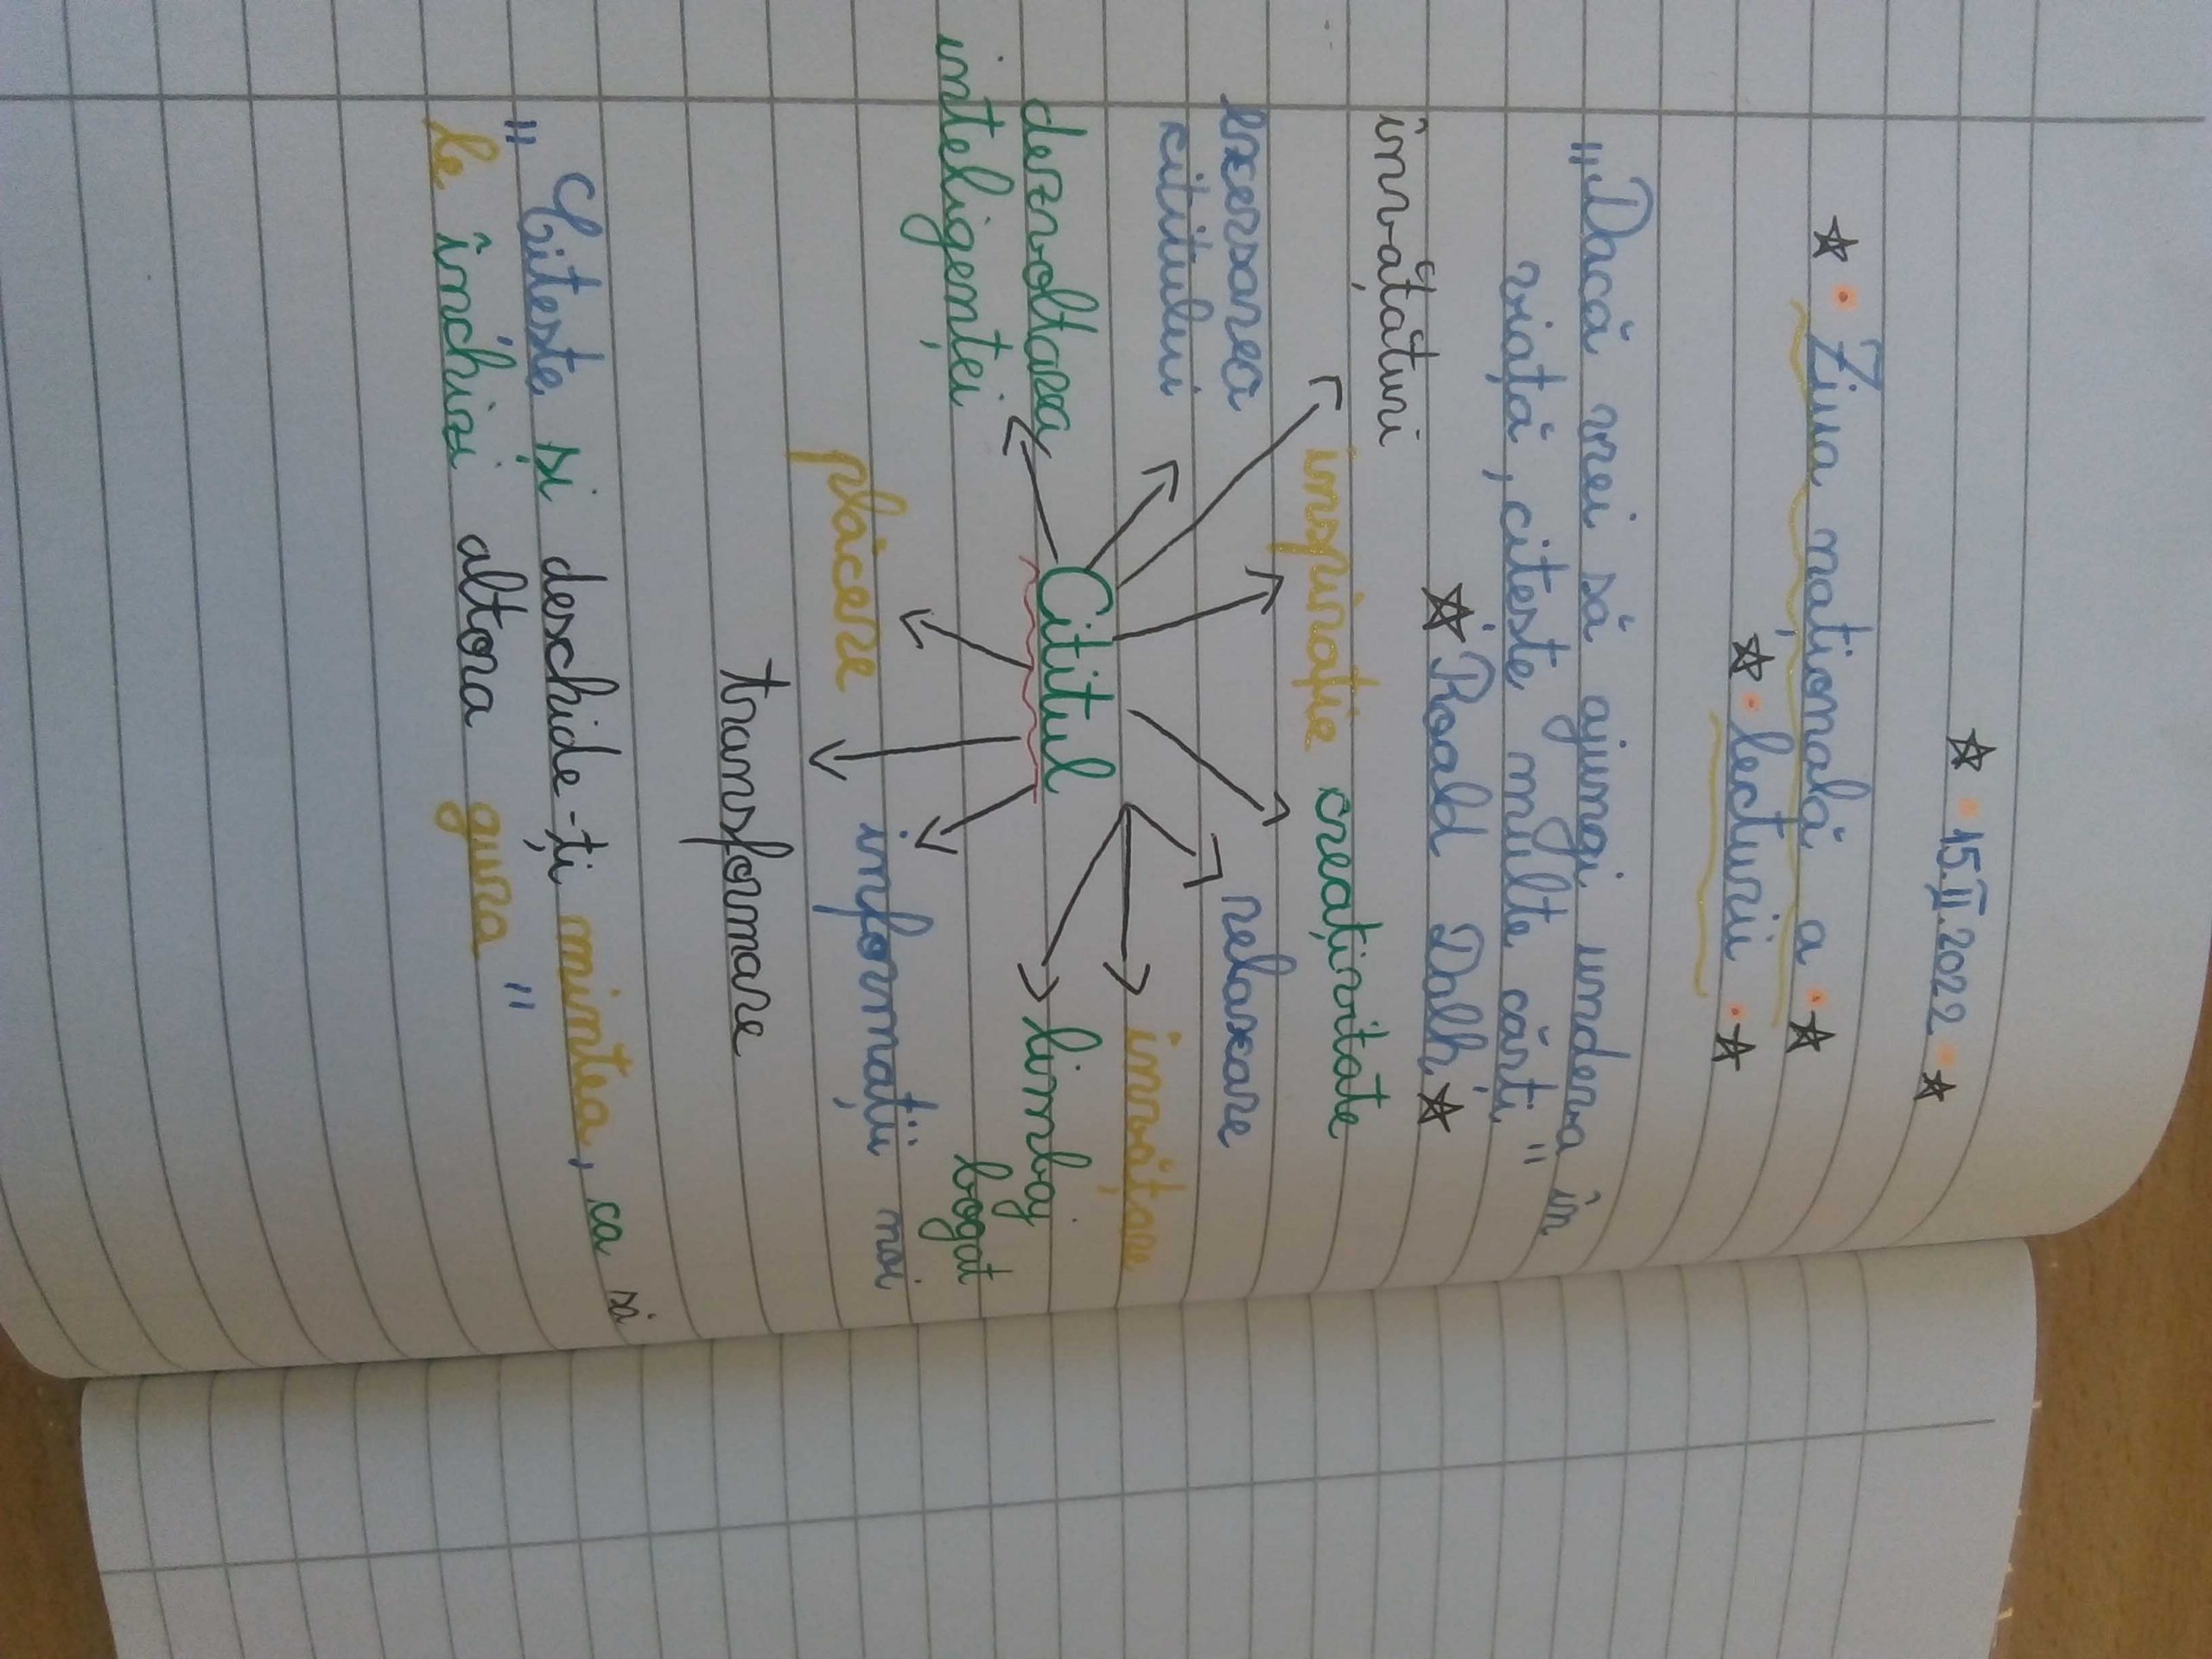 15.II.2022
Ziua națională a
lecturii
"Dacă vrei să ajungi undeva în
viață, citește multe cărți"
Roald Dalh
învățături
inspirație creativitate
exersarea
cititului
relaxare
învățare
dezvoltarea
inteligenței
Cititul
limbaj
bogat
plăcere
informații noi
transformare
"Citește și deschide-ți mintea, ca să
le închizi altora gura"